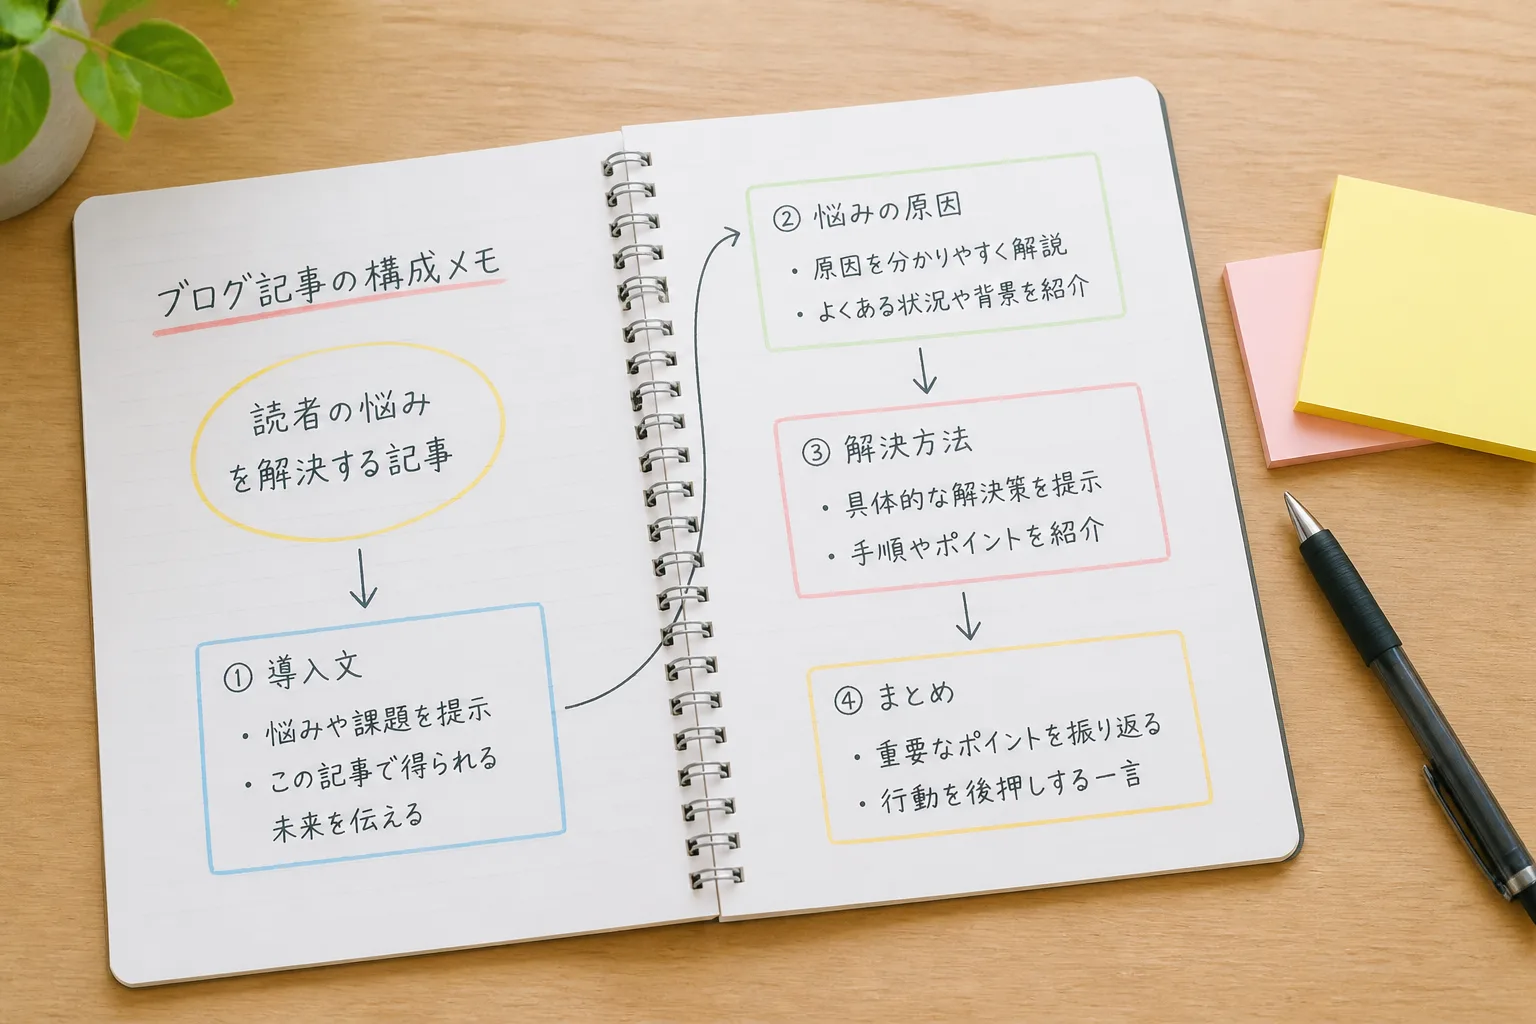 ブログ記事の構成メモ
読者の悩み
を解決する記事
① 導入文
・悩みや課題を提示
・この記事で得られる
未来を伝える
② 悩みの原因
・原因を分かりやすく解説
・よくある状況や背景を紹介
③ 解決方法
・具体的な解決策を提示
・手順やポイントを紹介
④ まとめ
・重要なポイントを振り返る
・行動を後押しする一言